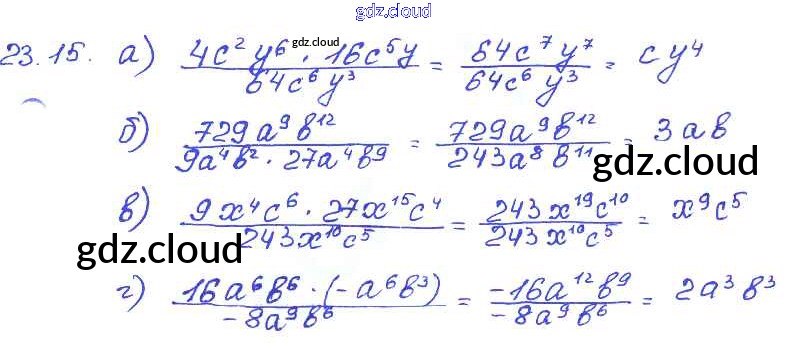 gdz.cloud
23.15. а) 4c² y⁶ · 16c⁵y / 64c⁶ y³ = 64c⁷ y⁷ / 64c⁶ y³ = cy⁴
gdz.cloud
б) 729a⁹b¹² / 9a⁴b² · 27a⁴b⁹ = 729a⁹b¹² / 243a⁸b¹¹ = 3ab
gdz.cloud
в) 9x⁴c⁶ · 27x¹⁵c⁴ / 243x¹⁰c⁵ = 243x¹⁹c¹⁰ / 243x¹⁰c⁵ = x⁹c⁵
gdz.cloud
г) 16a⁶b⁶ · (-a⁶b³) / -8a⁹b⁶ = -16a¹²b⁹ / -8a⁹b⁶ = 2a³b³